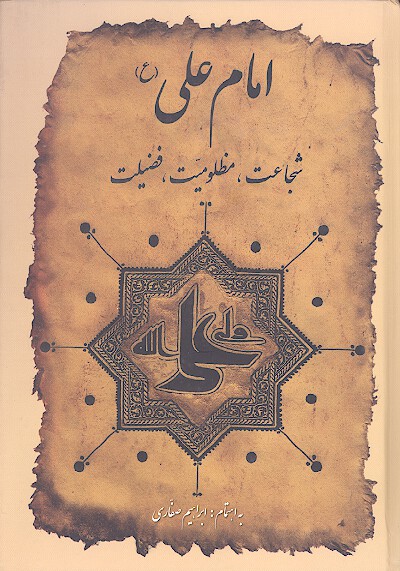 امام علی (ع)
شجاعت، مظلومیّت، فضیلت
علی ولی الله
به اهتمام: ابراهیم صفاری